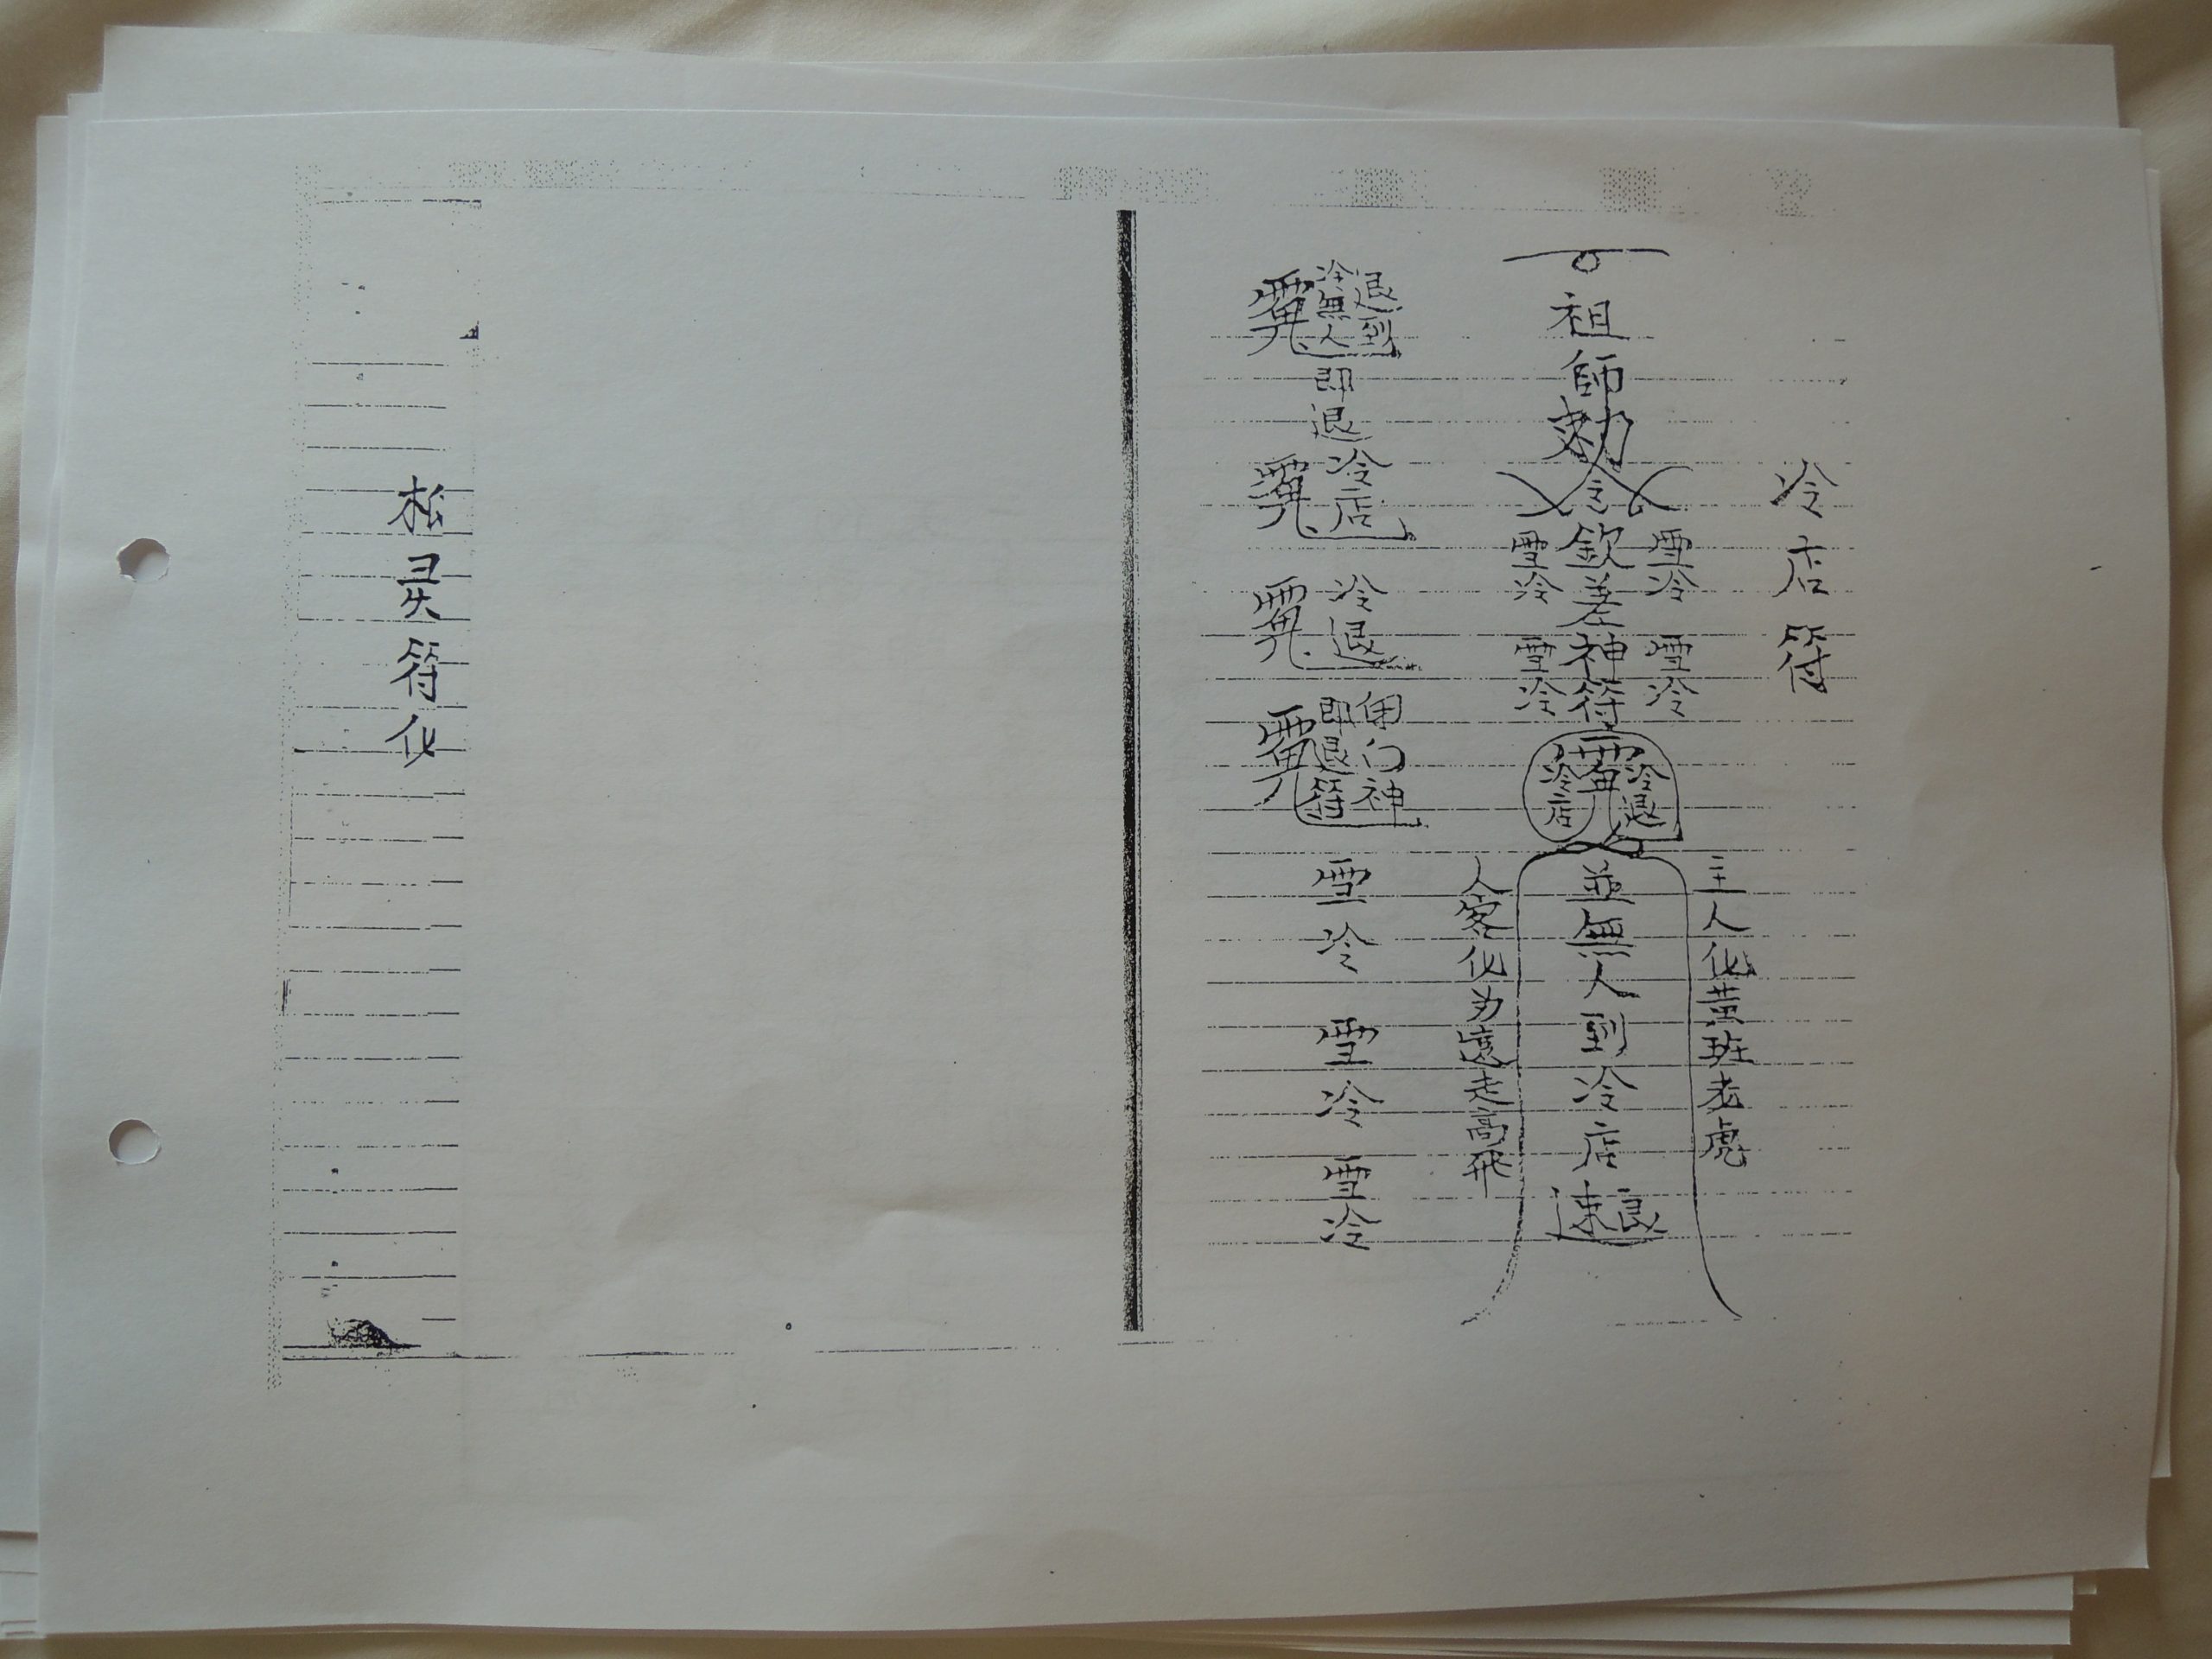 冷店符
主人化黃班老虎
祖師勅令欽差神符
雪冷 雪冷
雪冷 雪冷
冷退
冷店
並無人到冷店速退
人客化为遠走高飛
退到
冷無人
即退
冷店
冷退
門神
即退符
雪冷 雪冷 雪冷
松灵符化